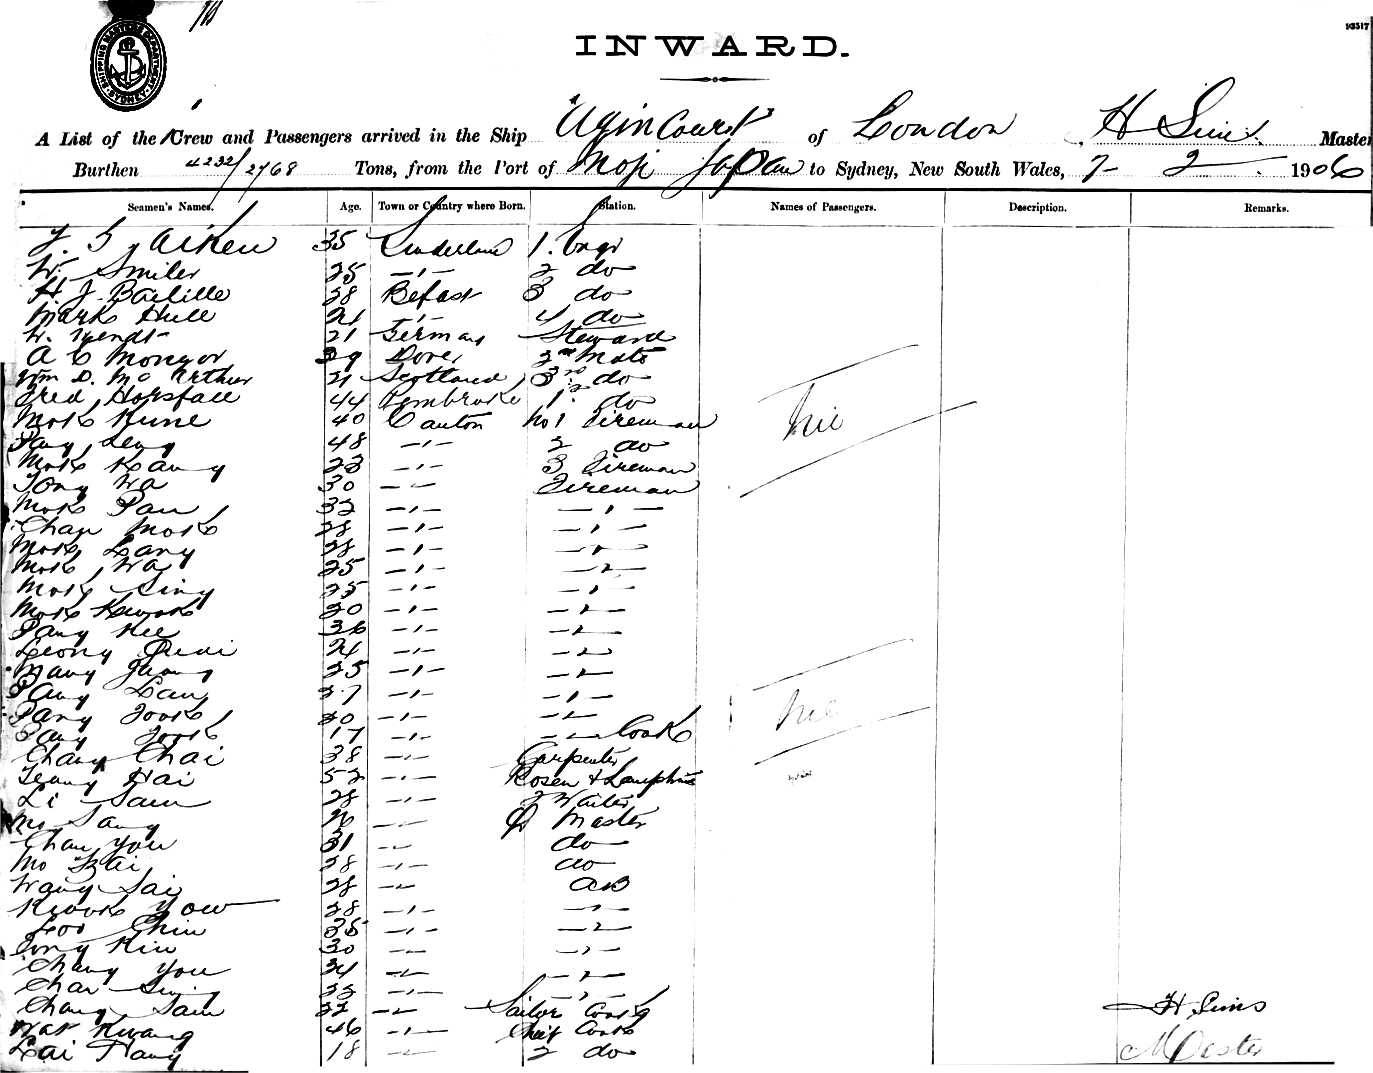 SHIPPING MASTERS DEPARTMENT SYDNEY
93517
INWARD.
A List of the Crew and Passengers arrived in the Ship "Agincourt" of London H Sims Master
Burthen 4232/2768 Tons, from the Port of Moji Japan to Sydney, New South Wales, 7- 2 1906
Seamen's Names. Age. Town or Country where Born. Station. Names of Passengers. Description. Remarks.
Aiken 35 Sunderland 1. Engr
W. Smiler 25 -"- 2 do
H. J. Bailille 28 Befast 3 do
Mark Hull 21 -"- 4 do
W. Wendt 21 German Steward
A C Mongor 39 Dover 2nd Mate
Wm D. Mc Arthur 21 Scotland 3rd do
Fred Horsfall 44 Pembroke 1st do
Mok Kune 40 Canton No 1 Fireman
Nil
Pang Leng 48 -"- 2 do
Mok Kang 23 -"- 3 Fireman
Tong Wa 30 -"- Fireman
Mok Pau 32 -"- -"-
Chan Mok 28 -"- -"-
Mok Lang 28 -"- -"-
Mok Wa 25 -"- -"-
Mok Sing 25 -"- -"-
Mok Kwok 20 -"- -"-
Pang Kee 36 -"- -"-
Leong Quai 21 -"- -"-
Wang 25 -"- -"-
Pang Lau 27 -"- -"-
Pang Fook 20 -"- -"-
Nil
Pang Fook 17 -"- -"- Cook
Chang Chai 38 -"- Carpenter
Teang Hai 52 -"- Bosen & Lamptrim
Li Sam 28 -"- 2 Waiter
Mo Sang 26 -"- Qr Master
Chan You 31 -"- do
Mo Tai 28 -"- do
Wang Sai 28 -"- AB
Kwok Yow 28 -"- -"-
Loo Chin 35 -"- -"-
Tong Kin 30 -"- -"-
Chang You 24 -"- -"-
Chan Sing 22 -"- -"-
Chang Sam 22 -"- Sailor Cook
H Sims
Wat Kwang 46 -"- Chief Cook
Lai Hang 18 -"- 2 do
Master